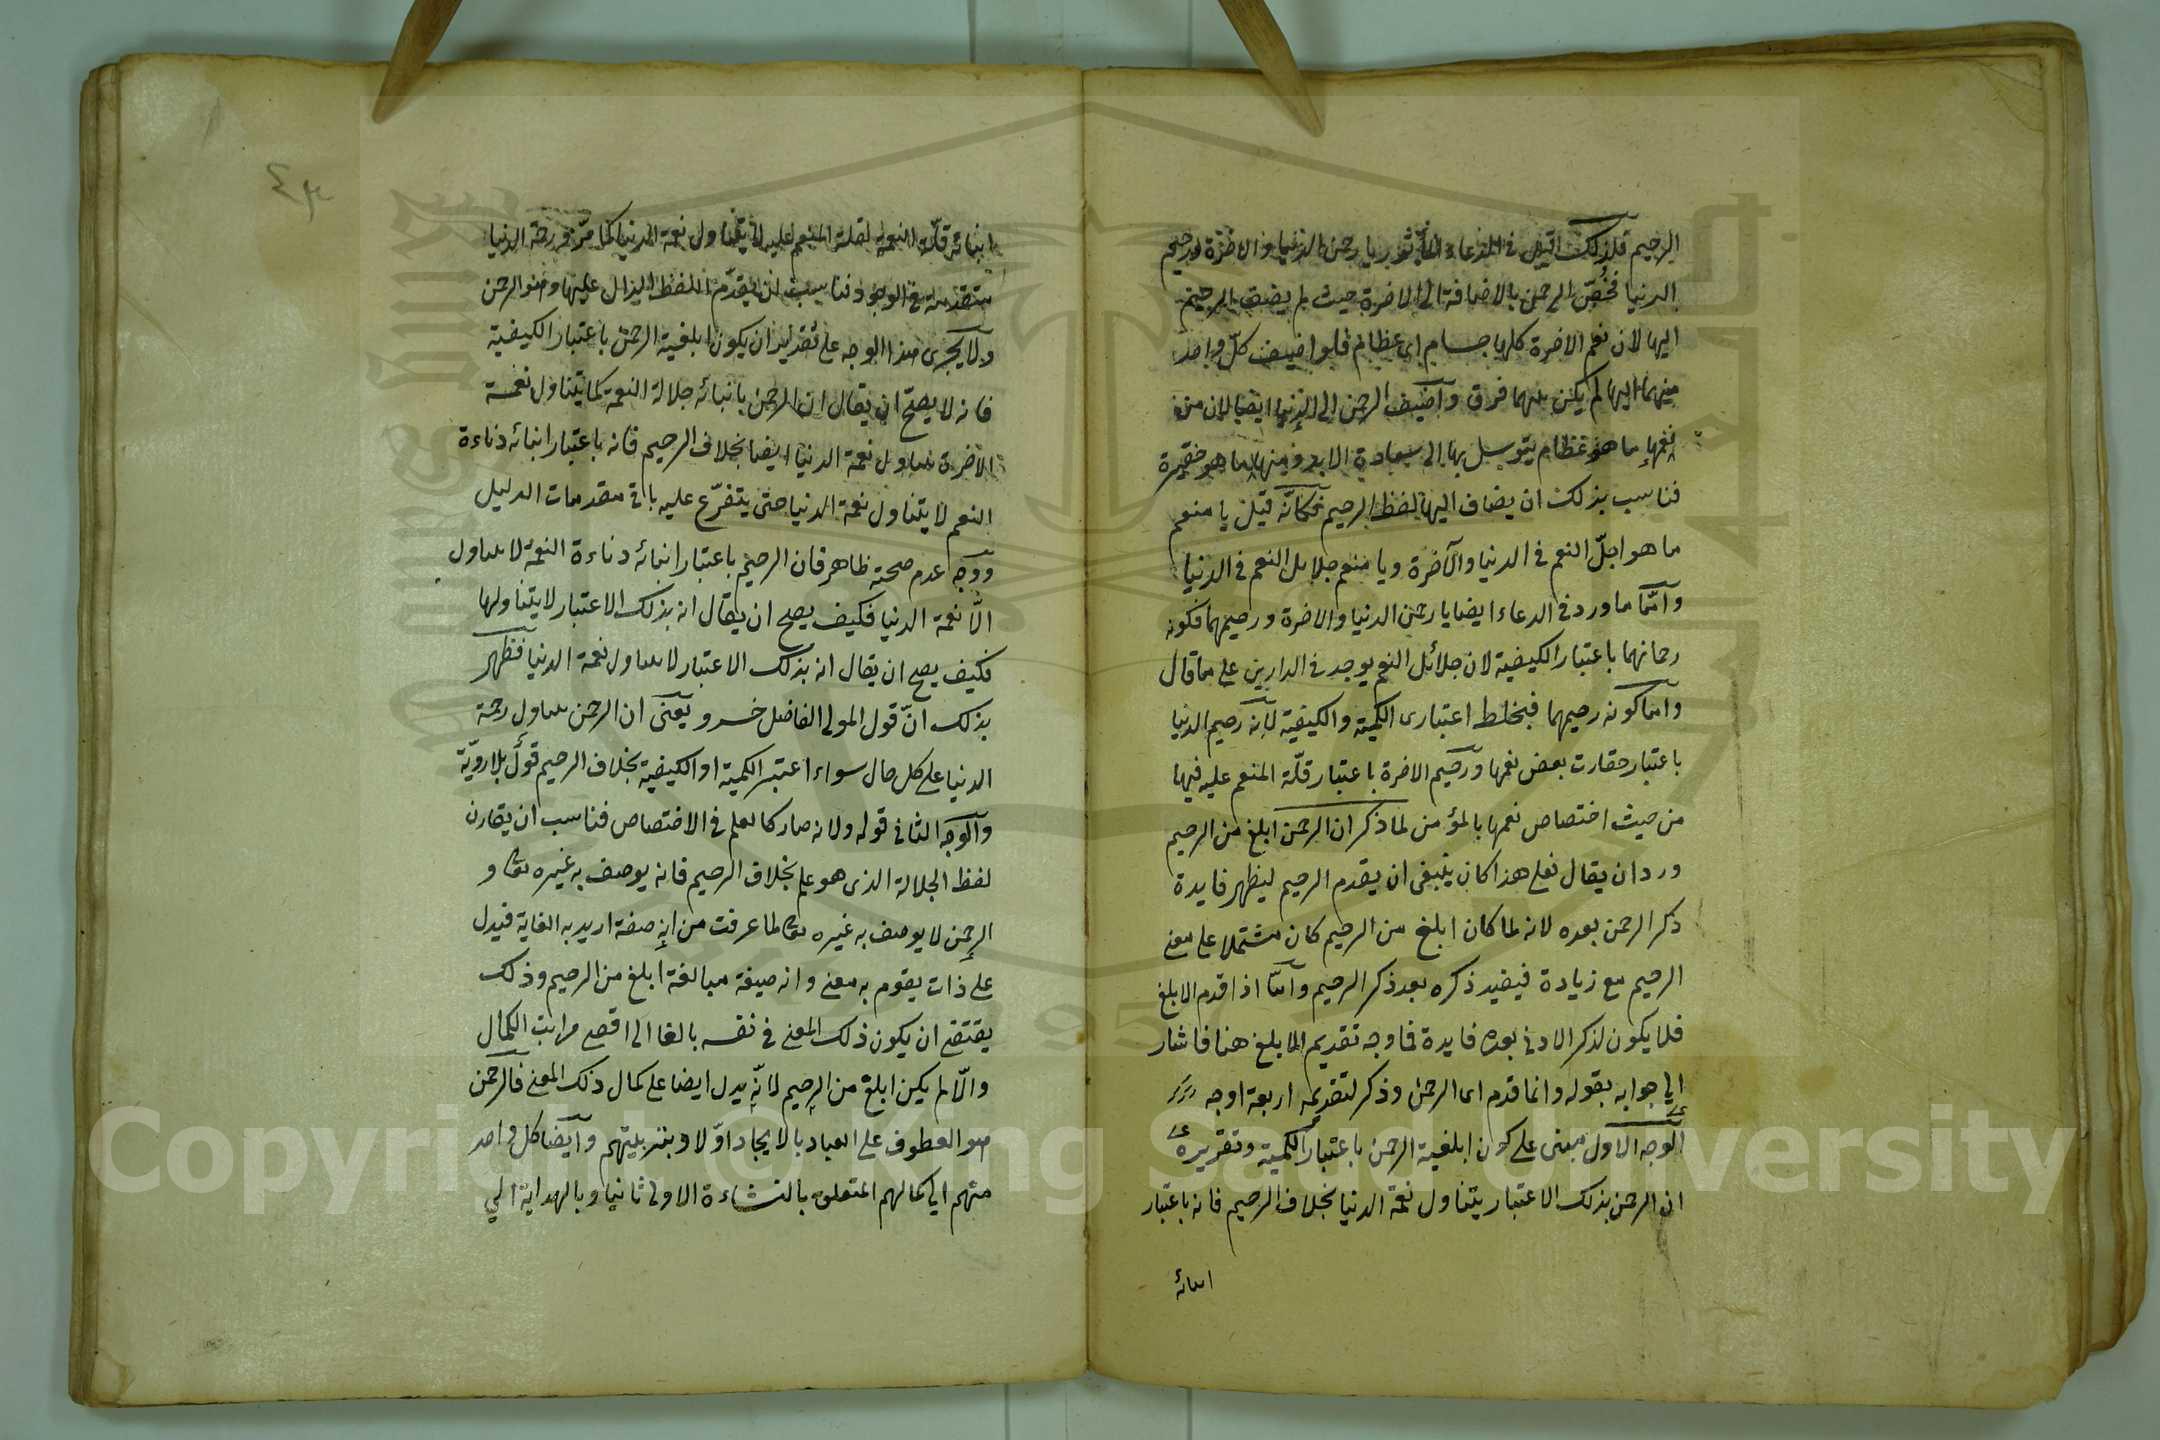 الرحيم فلذلك اقيل في الدعاء المأثور يا رحمن الدنيا والاخرة ورحيم
الدنيا فخصّ الرحمن بالاضافة الى الاخرة حيث لم يضف الرحيم
اليها لان نعم الاخرة كلها جسام اى عظام فلو اضيف كلّ واحد
منهما اليها لم يكن بينهما فرق وآضيف الرحمن الى الدنيا ايضا لان من
نعمها ما هو عظام يتوسل بها الى سعادة الابد ومنها ما هو حقيرة
فناسب بذلك ان يضاف اليها لفظ الرحيم فكانّه قيل يا منعم
ما هو اجلّ النعم في الدنيا والآخرة ويا منعم جلايل النعم في الدنيا
وامّا ما ورد في الدعاء ايضا يا رحمن الدنيا والاخرة ورحيمهما فكونه
رحمانهما باعتبار الكيفية لان جلائل النعم يوجد في الدارين على ما قال
وامّا كونه رحيمهما فبخلط اعتبارى الكمية والكيفية لانه رحيم الدنيا
باعتبار حقارت بعض نعمها ورحيم الاخرة باعتبار قلّة المنعم عليه فيها
من حيث اختصاص نعمها بالمؤمن لما ذكر ان الرحمن ابلغ من الرحيم
ورد ان يقال فعلى هذا كان ينبغى ان يقدم الرحيم ليظهر فايدة
ذكر الرحمن بعده لانه لما كان ابلغ من الرحيم كان مشتملا على معنى
الرحيم مع زيادة فيفيد ذكره بعد ذكر الرحيم وامّا اذا قدم الابلغ
فلا يكون لذكر الادنى بعده فايدة فما وجه تقديم الابلغ هنا فاشار
الى جوابه بقوله وانما قدم اى الرحمن وذكر لتقديمه اربعة اوجه
الوجه الاول مبنى على كون ابلغية الرحمن باعتبار الكمية وتقريره
ان الرحمن بذلك الاعتبار يتناول نعمة الدنيا بخلاف الرحيم فانه باعتبار
انبائه
انبائه قلّة النعمة لقلة المنعم عليه لا يتناول نعمة الدنيا كما مرّ ورحمة الدنيا
متقدمة في الوجود فناسب ان يقدّم اللفظ الدال عليها وهو الرحمن
ولا يجرى هذا الوجه على تقدير ان يكون ابلغية الرحمن باعتبار الكيفية
فانه لا يصحّ ان يقال ان الرحمن بانبائه جلالة النعمة كما يتناول نعمة
الاخرة يتناول نعمة الدنيا ايضا بخلاف الرحيم فانه باعتبار انبائه دناءة
النعم لا يتناول نعمة الدنيا حتى يتفرّع عليه باقى مقدمات الدليل
ووجه عدم صحته ظاهر فان الرحيم باعتبار انبائه دناءة النعمة لا يتناول
الّا نعمة الدنيا فكيف يصح ان يقال انه بذلك الاعتبار لا يتناولها
فكيف يصح ان يقال انه بذلك الاعتبار لا يتناول نعمة الدنيا فظهر
بذلك انّ قول المولى الفاضل خسرو يعنى ان الرحمن يتناول رحمة
الدنيا على كل حال سواء اعتبر الكمية او الكيفية بخلاف الرحيم قول بلا رويّة
والوجه الثانى قوله ولانه صار كالعلم في الاختصاص فناسب ان يقارن
لفظ الجلالة الذى هو علم بخلاف الرحيم فانه يوصف به غيره تعا و
الرحمن لا يوصف به غيره تعا لما عرفت من انه صفة اريد به الغاية فيدل
على ذات يقوم به معنى وانه صيغة مبالغة ابلغ من الرحيم وذلك
يقتضى ان يكون ذلك المعنى في نفسه بالغا الى اقصى مراتب الكمال
والّا لم يكن ابلغ من الرحيم لانّه يدل ايضا على كمال ذلك المعنى فالرحمن
هو العطوف على العباد بالايجاد اوّلا وبتربيتهم وآيضا كل واحد
منهم الى كمالهم المتعلق بالنشاءة الاولى ثانيا وبالهداية الى